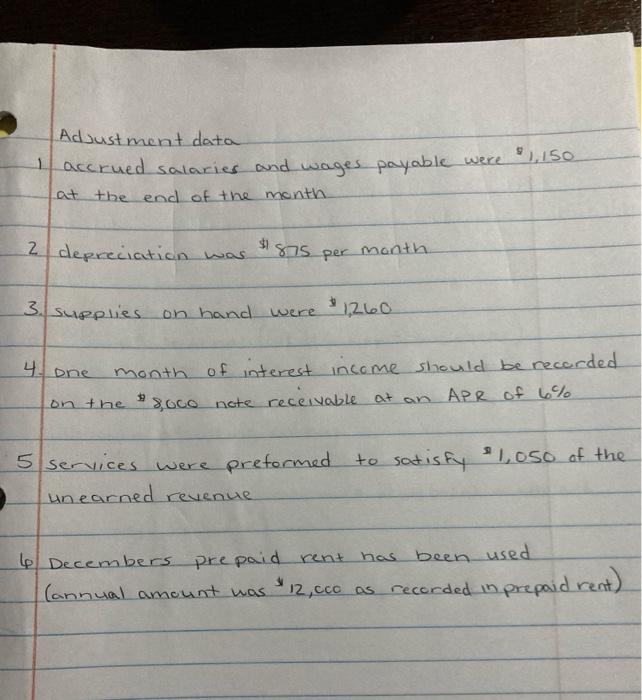 Adjustment data
1 accrued salaries and wages payable were $1,150
at the end of the month
2 depreciation was $875 per month
3. supplies on hand were $1,260
4. one month of interest income should be recorded
on the $8,000 note receivable at an APR of 6%
5 services were preformed to satisfy $1,050 of the
unearned revenue
6 Decembers prepaid rent has been used
(annual amount was $12,000 as recorded in prepaid rent)